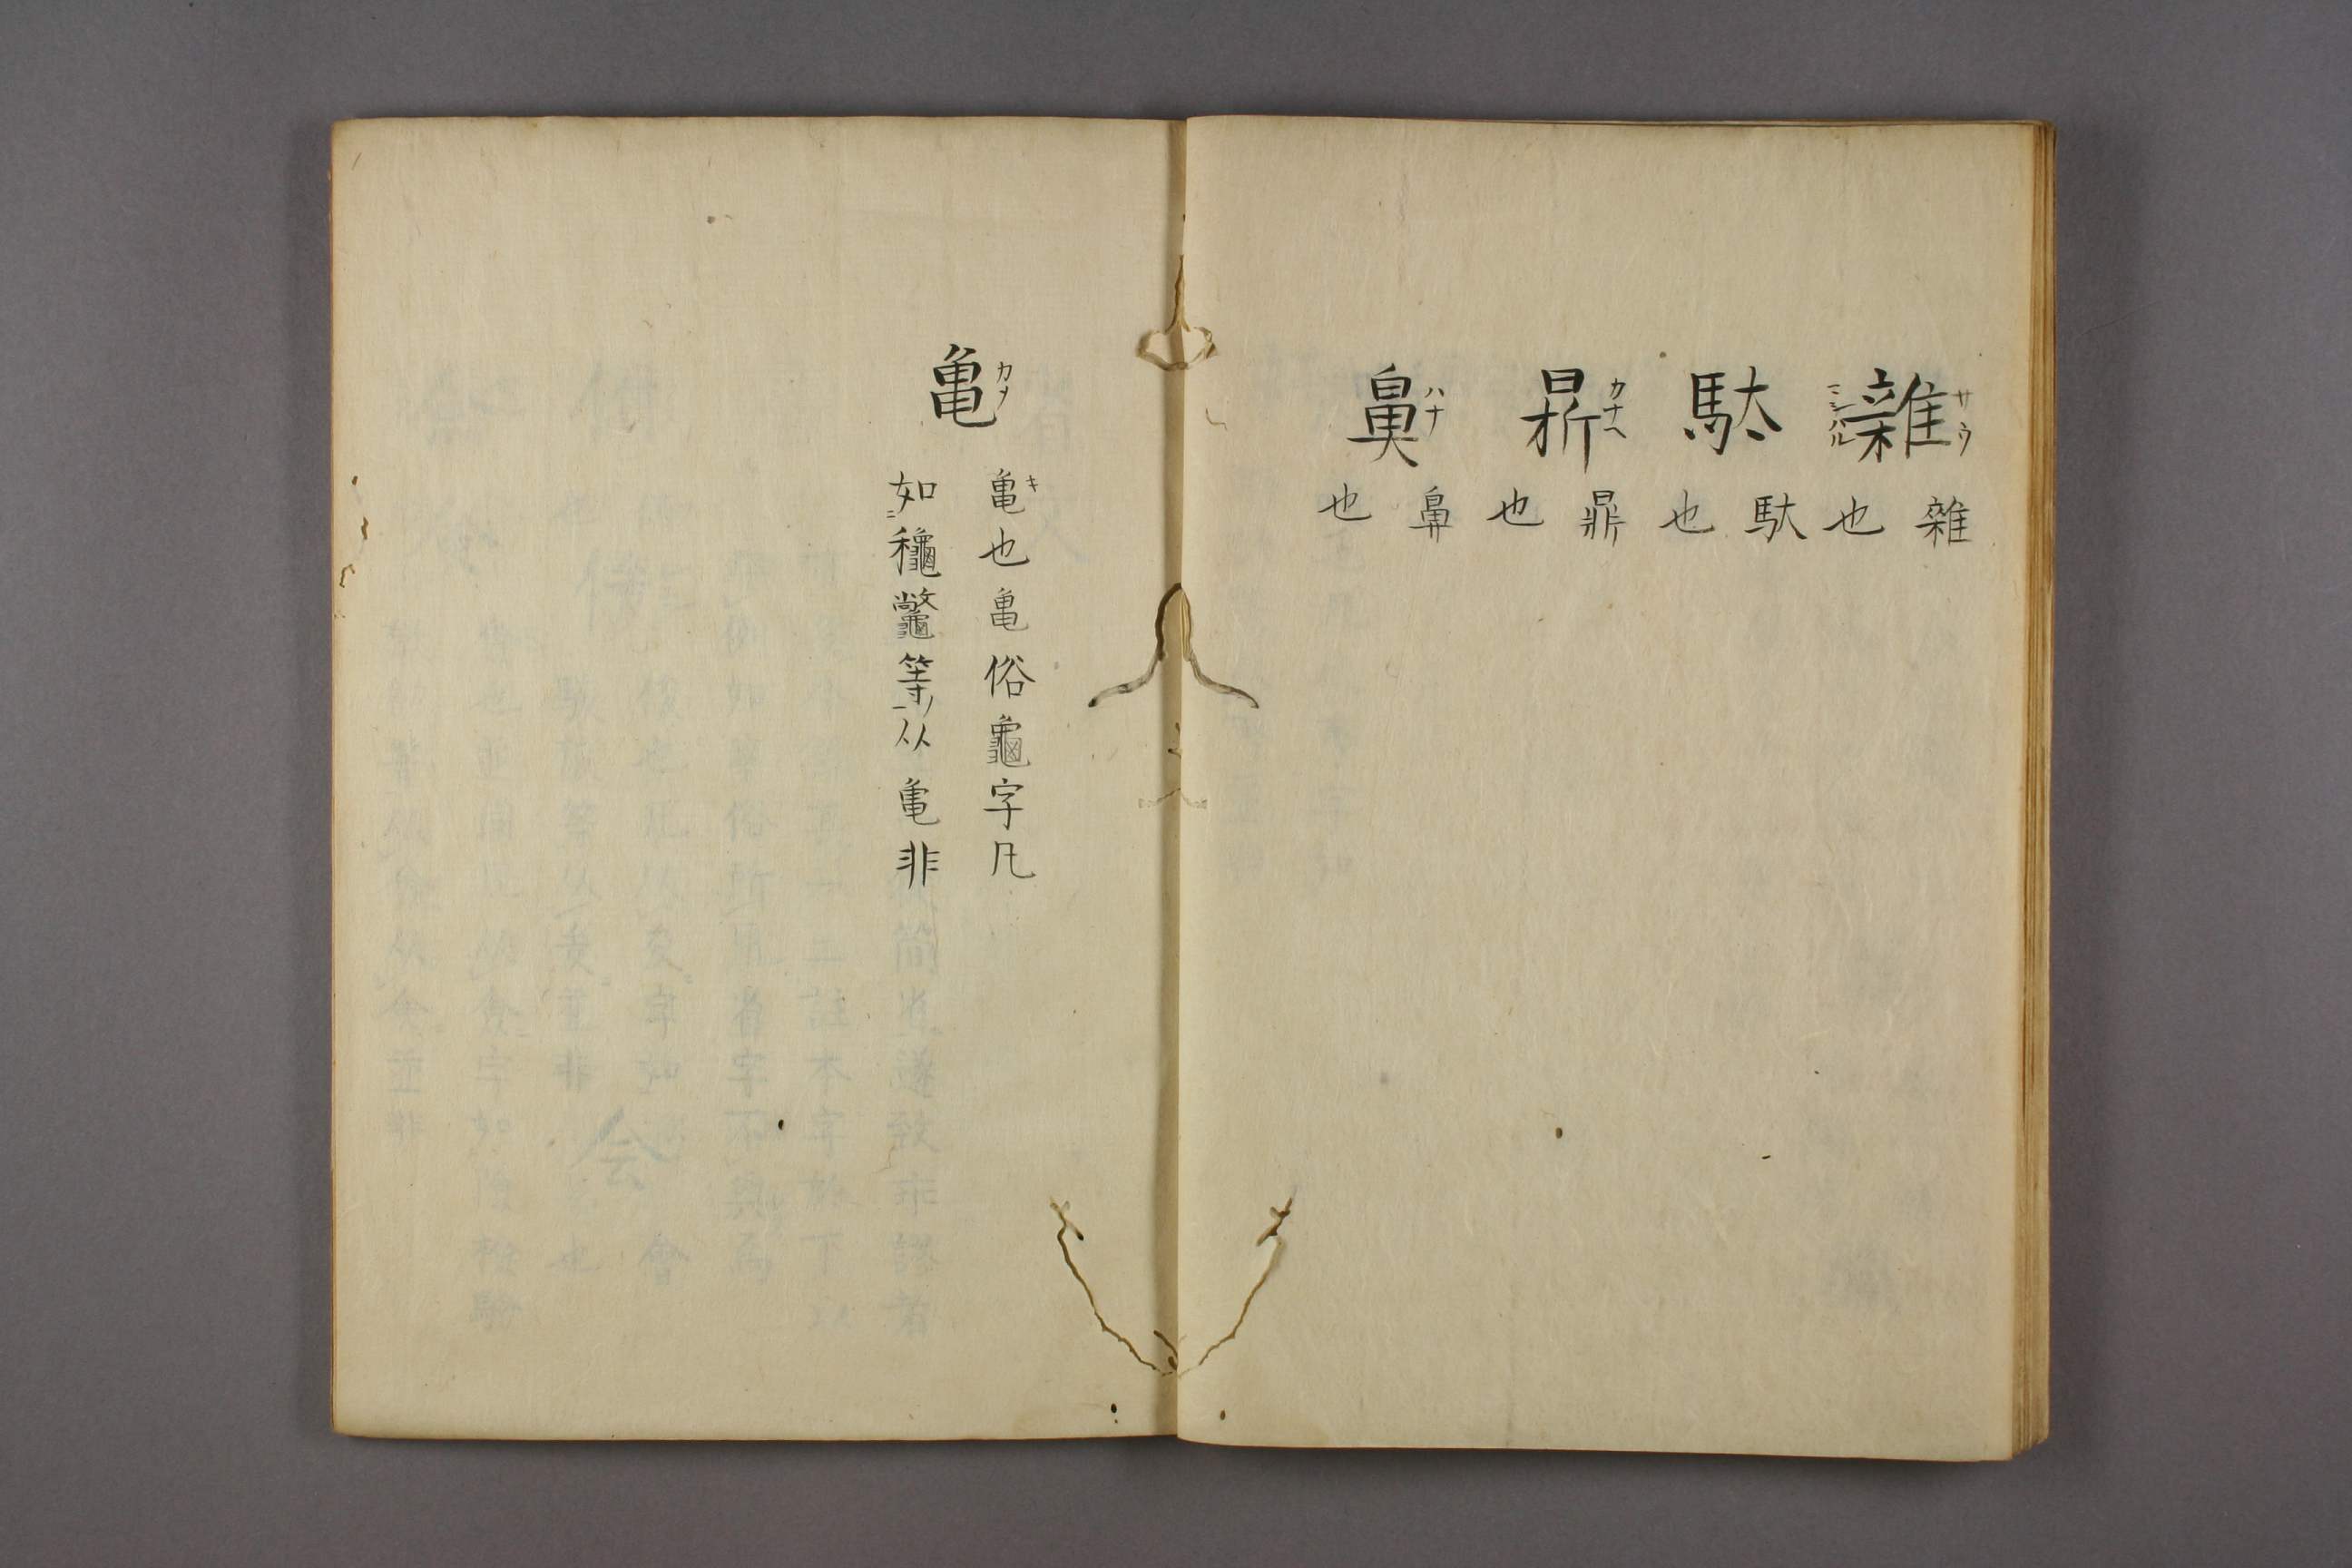 雜 サウ ミシハル
雜也
䭾
馱也
鼎 カナヘ
鼎也
鼻 ハナ
鼻也
亀 カメ
亀也亀俗龜字凡
如龝鼈等从亀非